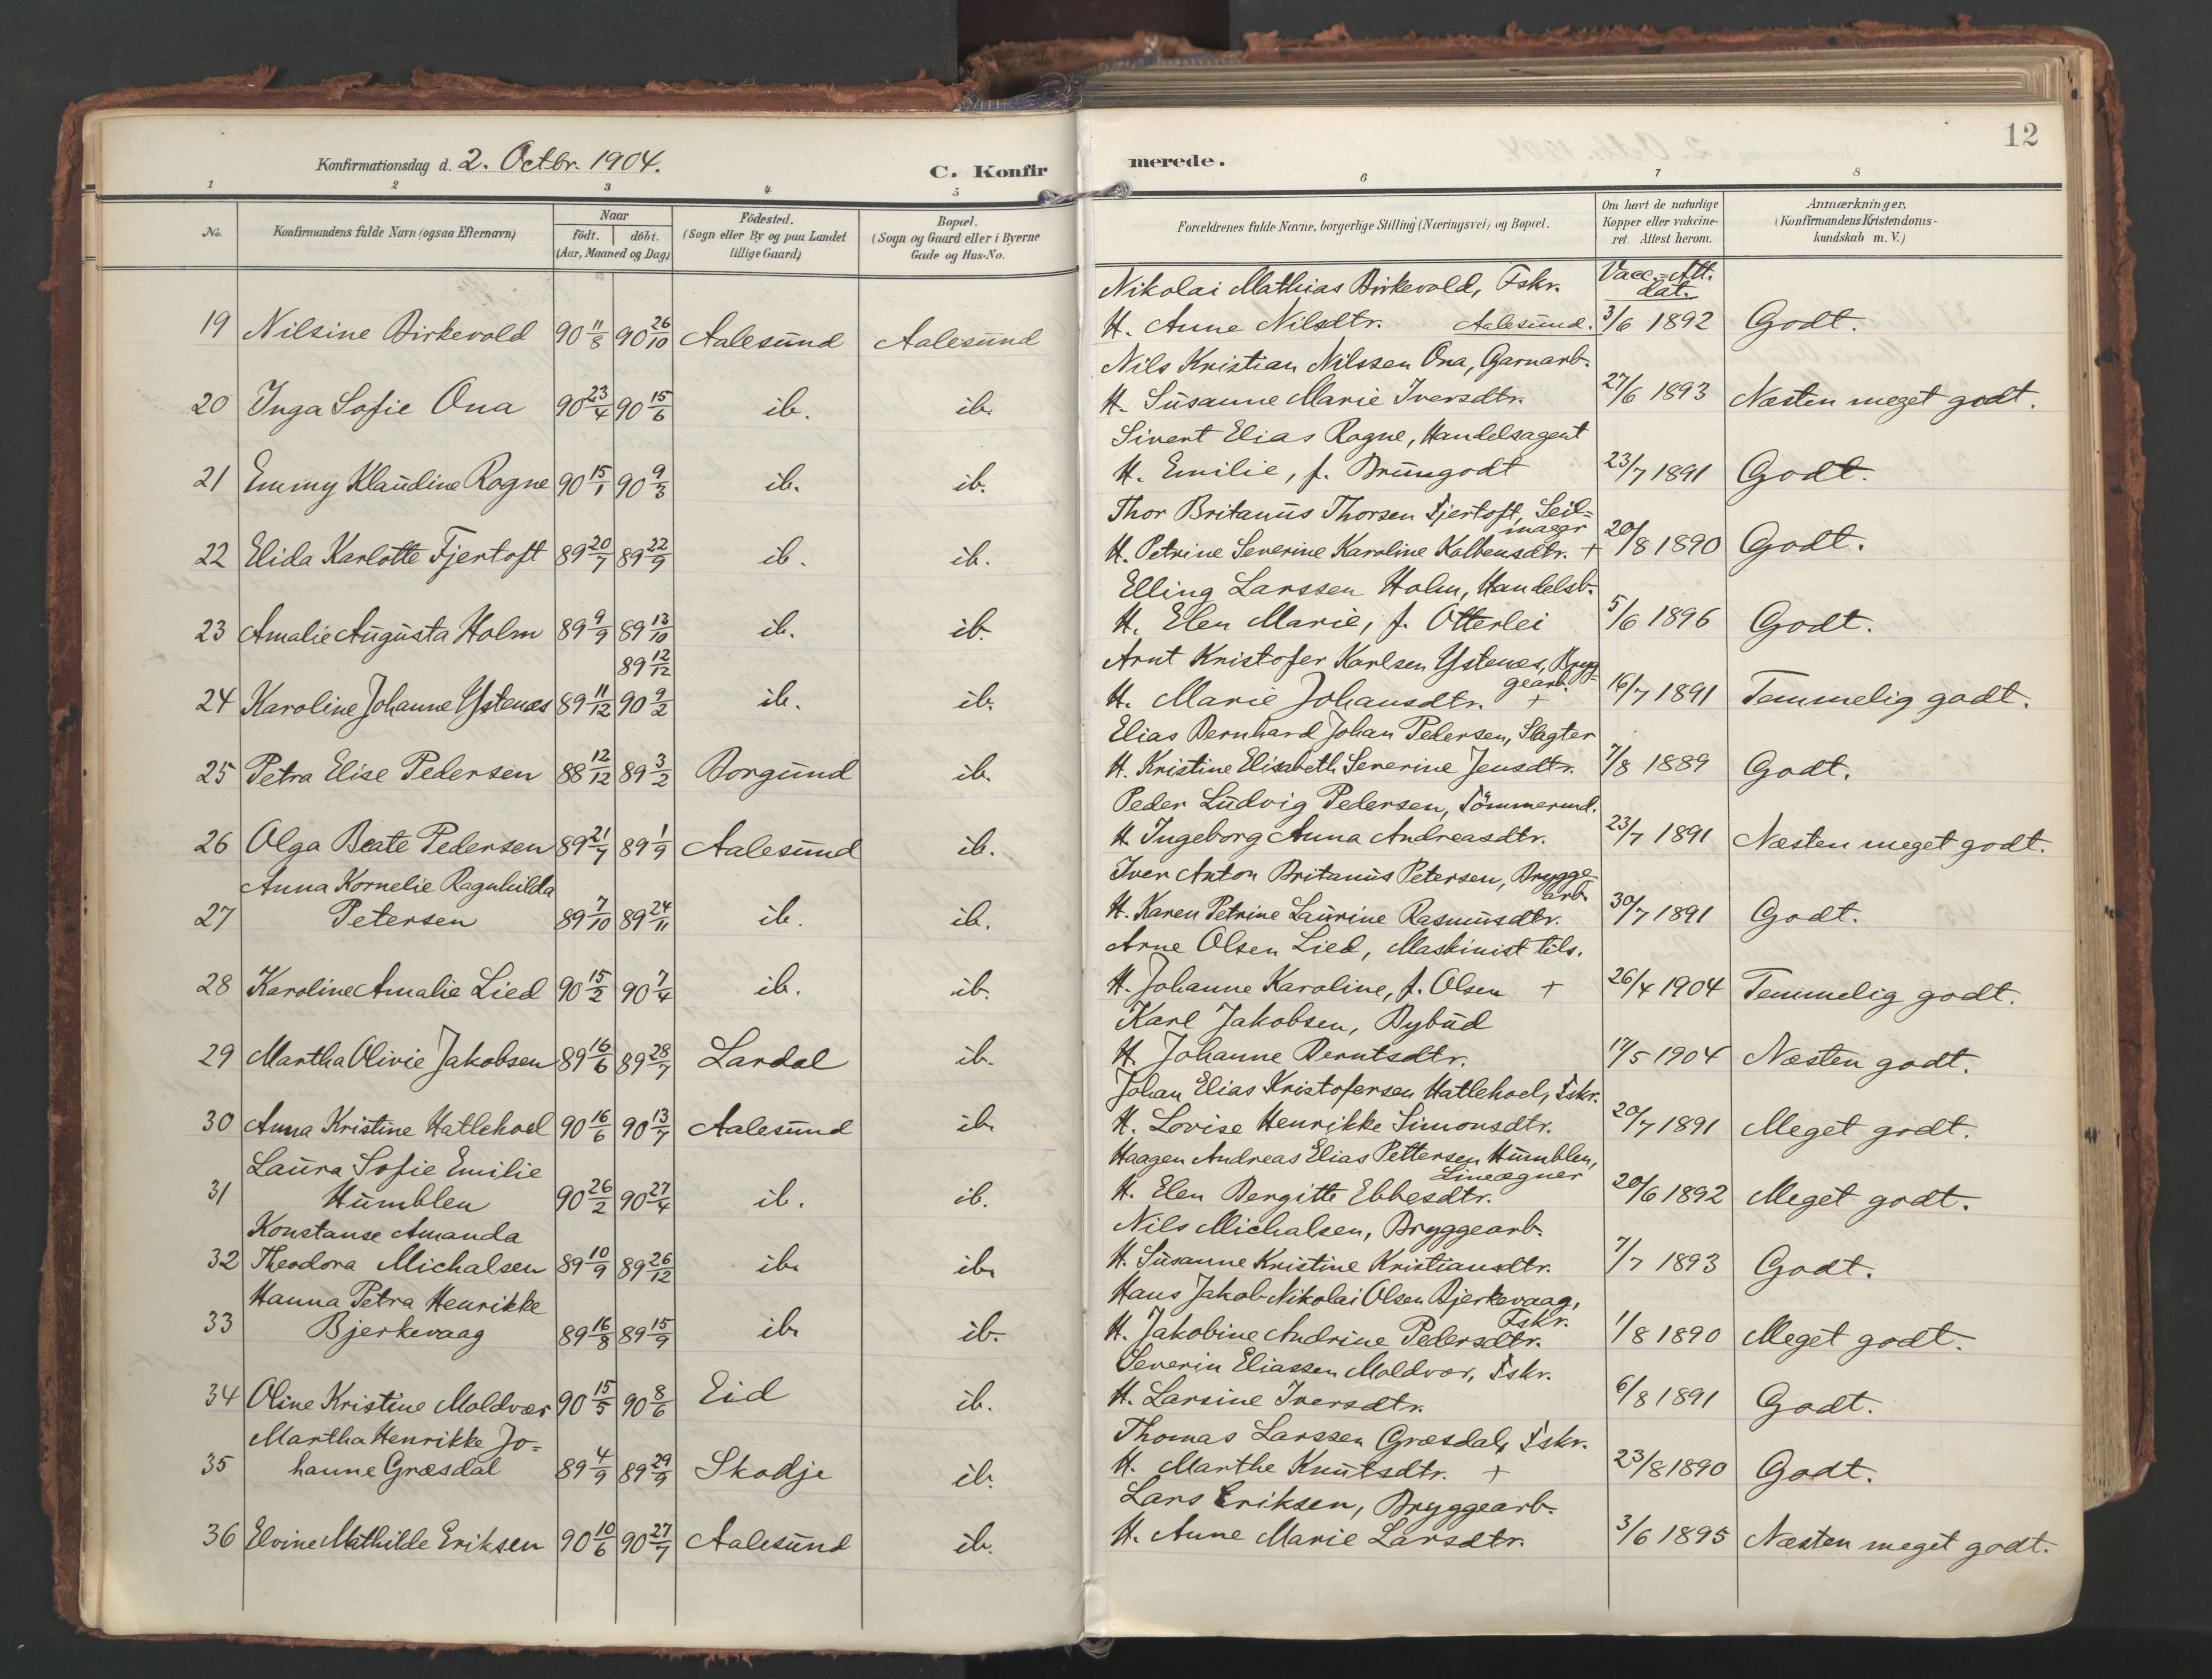 Konfirmationsdag d. 2. Octbr. 1904.
C. Konfir merede.
12
1 2 3 4 5 6 7 8
No.
Konfirmandens fulde Navn (ogsaa Efternavn)
Naar
födt. döbt.
(Aar, Maaned og Dag)
Födested.
(Sogn eller By og paa Landet
tillige Gaard)
Bopæl.
(Sogn og Gaard eller i Byerne
Gade og Hus-No.
Forældrenes fulde Navne, borgerlige Stilling (Næringsvei) og Bopæl.
Om havt de naturlige
Kopper eller vakcine-
ret. Attest herom.
Anmærkninger.
(Konfirmandens Kristendoms-
kundskab m. V.)
Vacc.-Att.
dat.
Nikolai Mathias Birkevold, Fskr.
19 Nilsine Birkevold 90 11/8 90 26/10 Aalesund Aalesund H. Anne Nilsdtr. Aalesund. 3/6 1892 Godt.
Nils Kristian Nilssen Ona, Garnarb.
20 Inga Sofie Ona 90 23/4 90 15/6 ib. ib. H. Susanne Marie Iversdtr. 27/6 1893 Næsten meget godt.
Sivert Elias Rogne, Handelsagent
21 Emmy Klaudine Rogne 90 15/1 90 9/3 ib. ib. H. Emilie, f. Brungodt 23/7 1891 Godt.
Thor Britanus Thorsen Fjertoft, Seil=
magr
22 Elida Karlotte Fjertoft 89 20/7 89 22/9 ib. ib. H. Petrine Severine Karoline Kolbensdtr. + 20/8 1890 Godt.
Elling Larssen Holm, Handelsb.
23 Amalie Augusta Holm 89 9/9 89 13/10 ib. ib. H. Elen Marie, f. Otterlei 5/6 1896 Godt.
89 12/12
Arnt Kristofer Karlsen Ystenes, Bryg
gearb.
24 Karoline Johanne Ystenes 89 11/12 90 9/2 ib. ib. H. Marie Johansdtr. + 16/7 1891 Temmelig godt.
Elias Bernhard Johan Pedersen, Slagter
25 Petra Elise Pedersen 88 12/12 89 3/2 Borgund ib. H. Kristine Elisabeth Severine Jensdtr. 7/8 1889 Godt.
Peder Ludvig Pedersen, Tömmermd.
26 Olga Beate Pedersen 89 21/7 89 1/9 Aalesund ib. H. Ingeborg Anna Andreasdtr. 23/7 1891 Næsten meget godt.
Anna Kornelie Ragnhilda Iver Anton Britanus Petersen, Brygge
arb.
27 Petersen 89 7/10 89 24/11 ib. ib. H. Karen Petrine Laurine Rasmusdtr. 30/7 1891 Godt.
Arne Olsen Lied, Maskinist tils.
28 Karoline Amalie Lied 90 15/2 90 7/4 ib. ib. H. Johanne Karoline, f. Olsen + 26/4 1904 Temmelig godt.
Karl Jakobsen, Bybud
29 Martha Olivie Jakobsen 89 16/6 89 28/7 Lardal ib. H. Johanne Berntsdtr. 17/5 1904 Næsten godt.
Johan Elias Kristofersen Hatlehoel, Fskr.
30 Anna Kristine Hatlehoel 90 16/6 90 13/7 Aalesund ib. H. Lovise Henrikke Simonsdtr. 20/7 1891 Meget godt.
Laura Sofie Emilie Haagen Andreas Elias Pettersen Humblen,
Lineægner
31 Humblen 90 26/2 90 27/4 ib. ib. H. Elen Bergitte Ebbesdtr. 20/6 1892 Meget godt.
Konstanse Amanda Nils Michalsen, Bryggearb.
32 Theodora Michalsen 89 10/9 89 26/12 ib. ib. H. Susanne Kristine Kristiansdtr. 7/7 1893 Godt.
Hanna Petra Henrikke Hans Jakob Nikolai Olsen Bjerkevaag,
Fskr.
33 Bjerkevaag 89 16/8 89 15/9 ib. ib. H. Jakobine Andrine Pedersdtr. 1/8 1890 Meget godt.
Severin Eliassen Moldvær, Fskr.
34 Oline Kristine Moldvær 90 15/5 90 8/6 Eid ib. H. Larsine Iversdtr. 6/8 1891 Godt.
Martha Henrikke Jo= Thomas Larssen Græsdal, Fskr.
35 hanne Græsdal 89 4/9 89 29/9 Skodje ib. H. Marthe Knutsdtr. + 23/8 1890 Godt.
Lars Eriksen, Bryggearb.
36 Elvine Mathilde Eriksen 90 10/6 90 27/7 Aalesund ib. H. Anne Marie Larsdtr. 3/6 1895 Næsten meget godt.